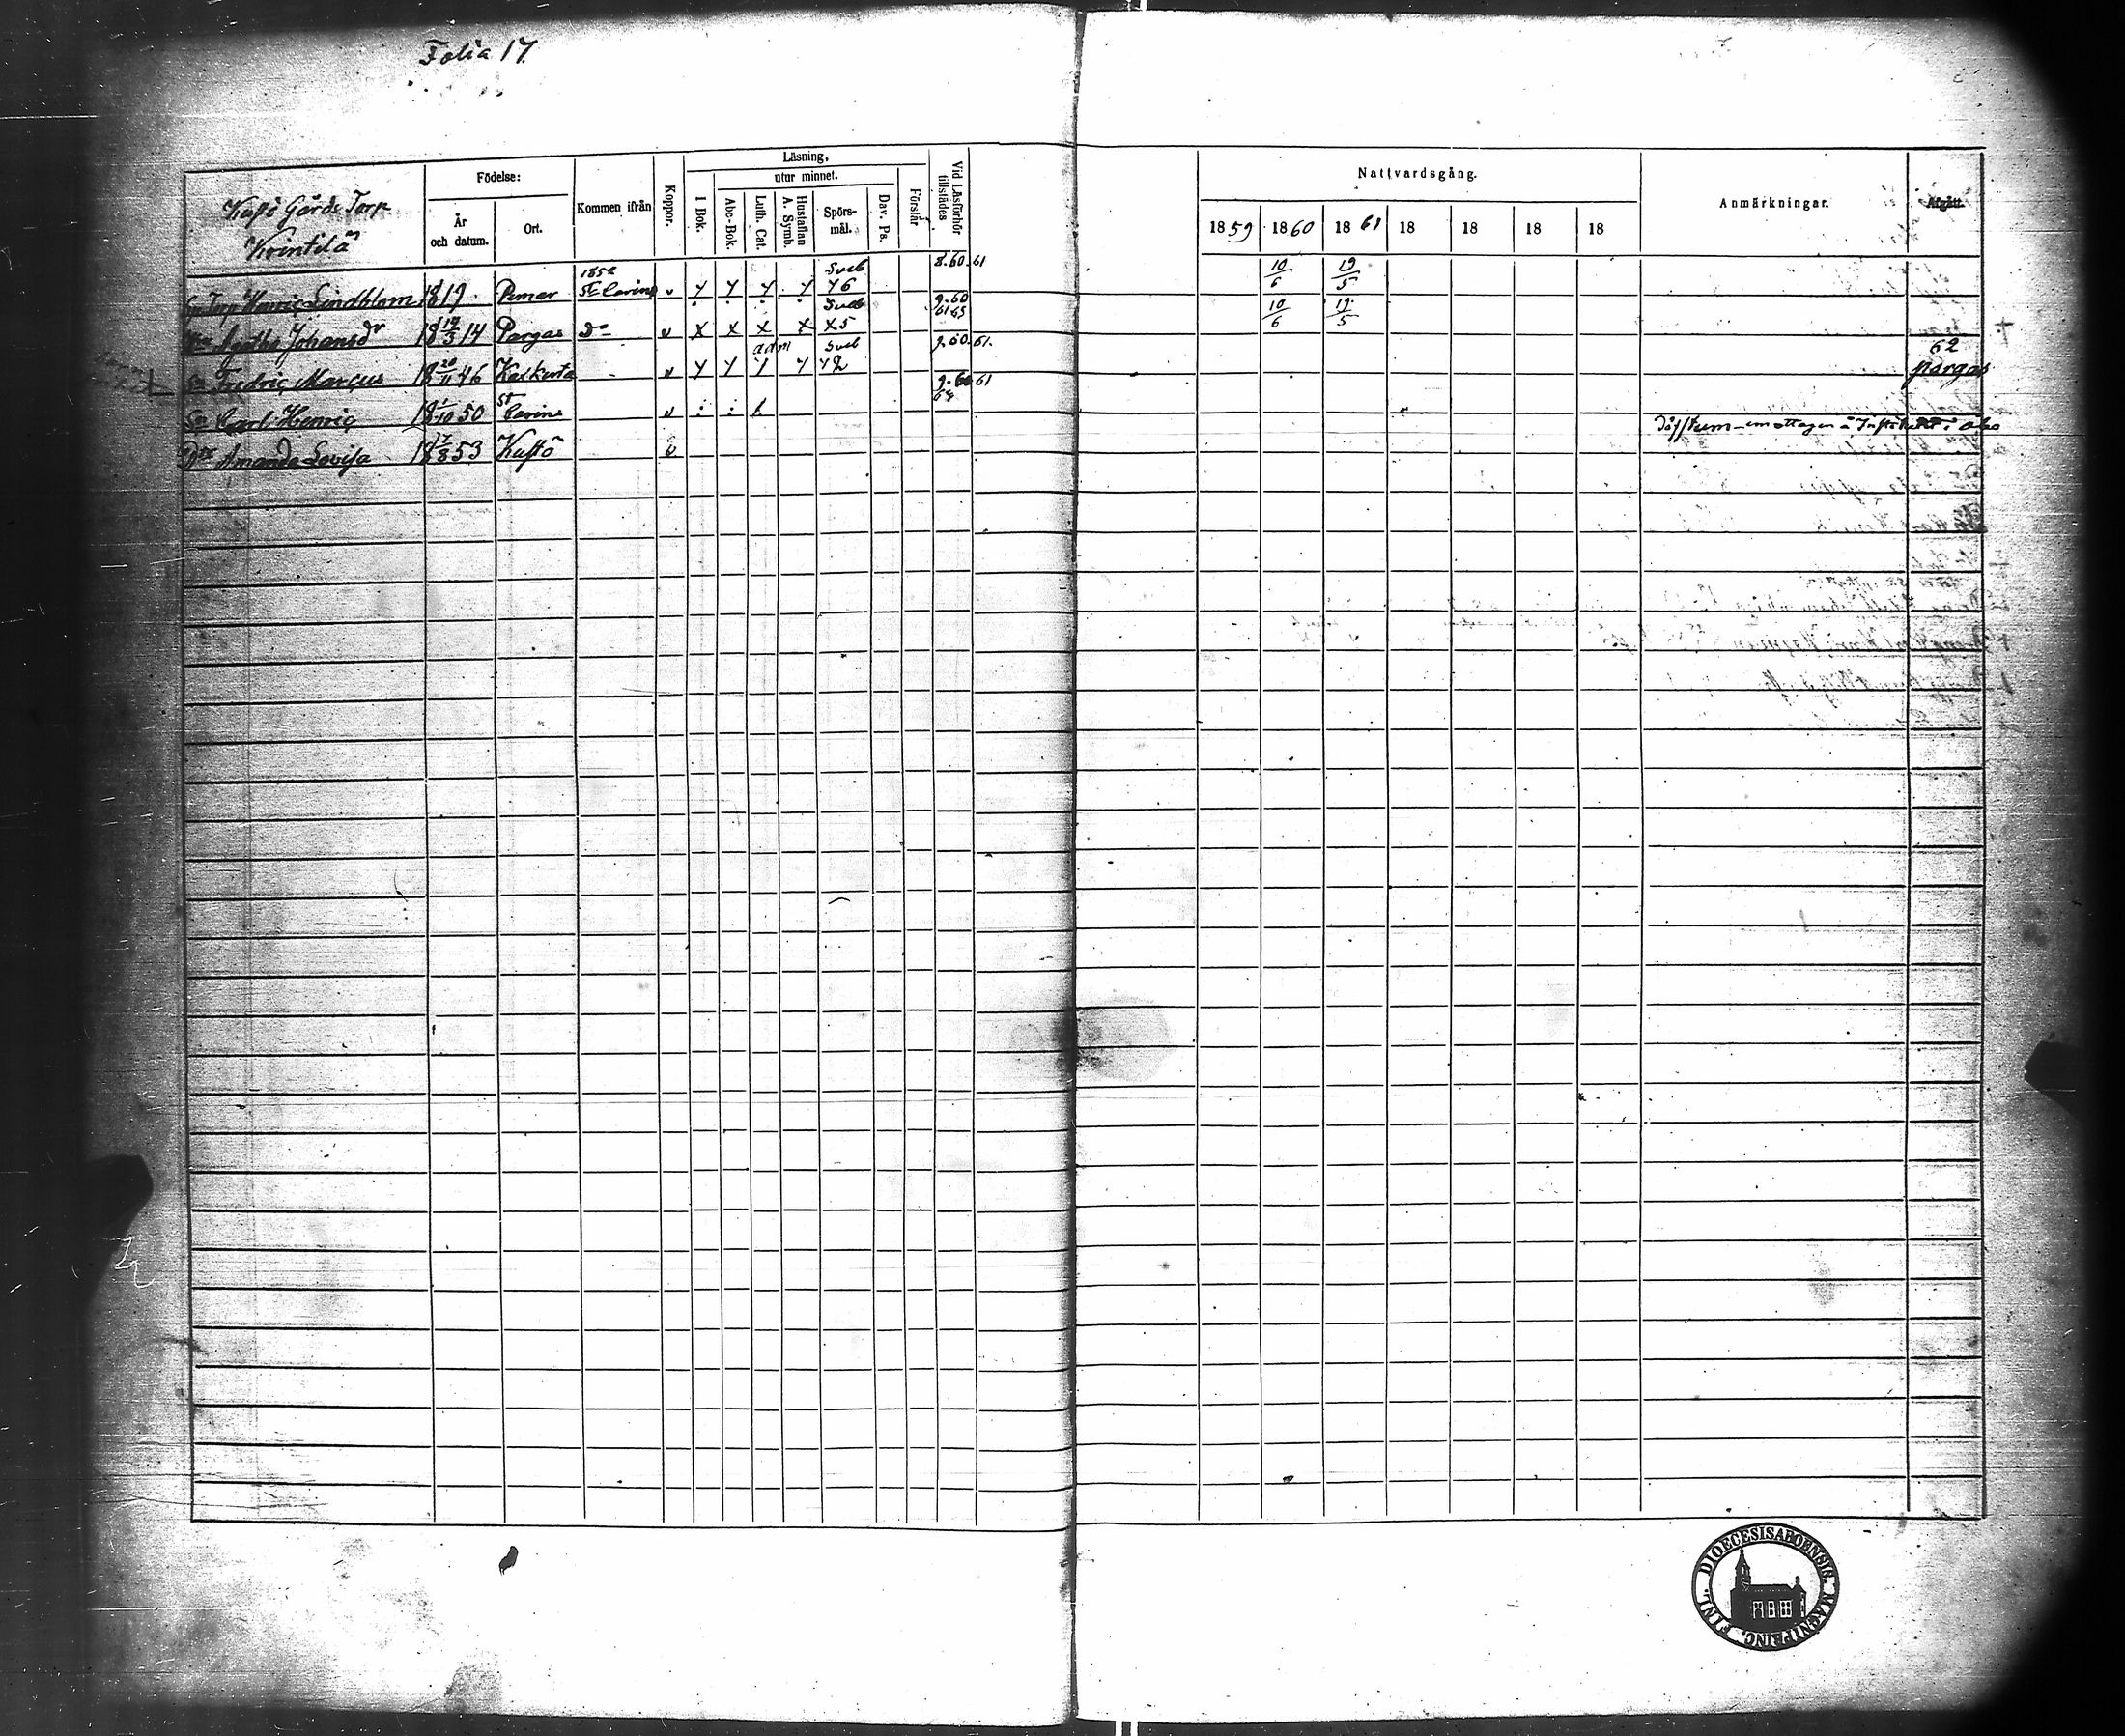 Folia 17.
Läsning,
Födelse:
utur minnet.
Kustö Gårds Torp
Kvintilä
År och datum.
Ort.
Kommen ifrån
Koppor.
I Bok.
Abc-Bok.
Luth. Cat.
Hustaflan A. Symb.
Spörs-mål.
Dav. Ps.
Förstår
Vid Läsförhör tillstädes
Nattvardsgång.
Anmärkningar.
Afgått.
1859 1860 1861 18 18 18 18
Torp Henric Lindblom 1819. Pemar 1852 St Carins v Y Y Y Y Y6 8.60.61 10/6 19/5
Agatha Johansdr 18 3 14 Pargas Do v X X X X X5 9.60 61 10/6 19/5
Sn Fredric Marcus 18 20/11 46 Kaxkerta v Y Y Y Y Y2 9.60.61. 62 Pargas
Sn Carl Henric 18 1/10 50 St Carins v 9.60 61
Dr Amanda Lovisa 18 17/8 53 Kustö v Döfstum i Åbo
DIOECESIS ABOENSIS. MAGNI PRINC. FINL.